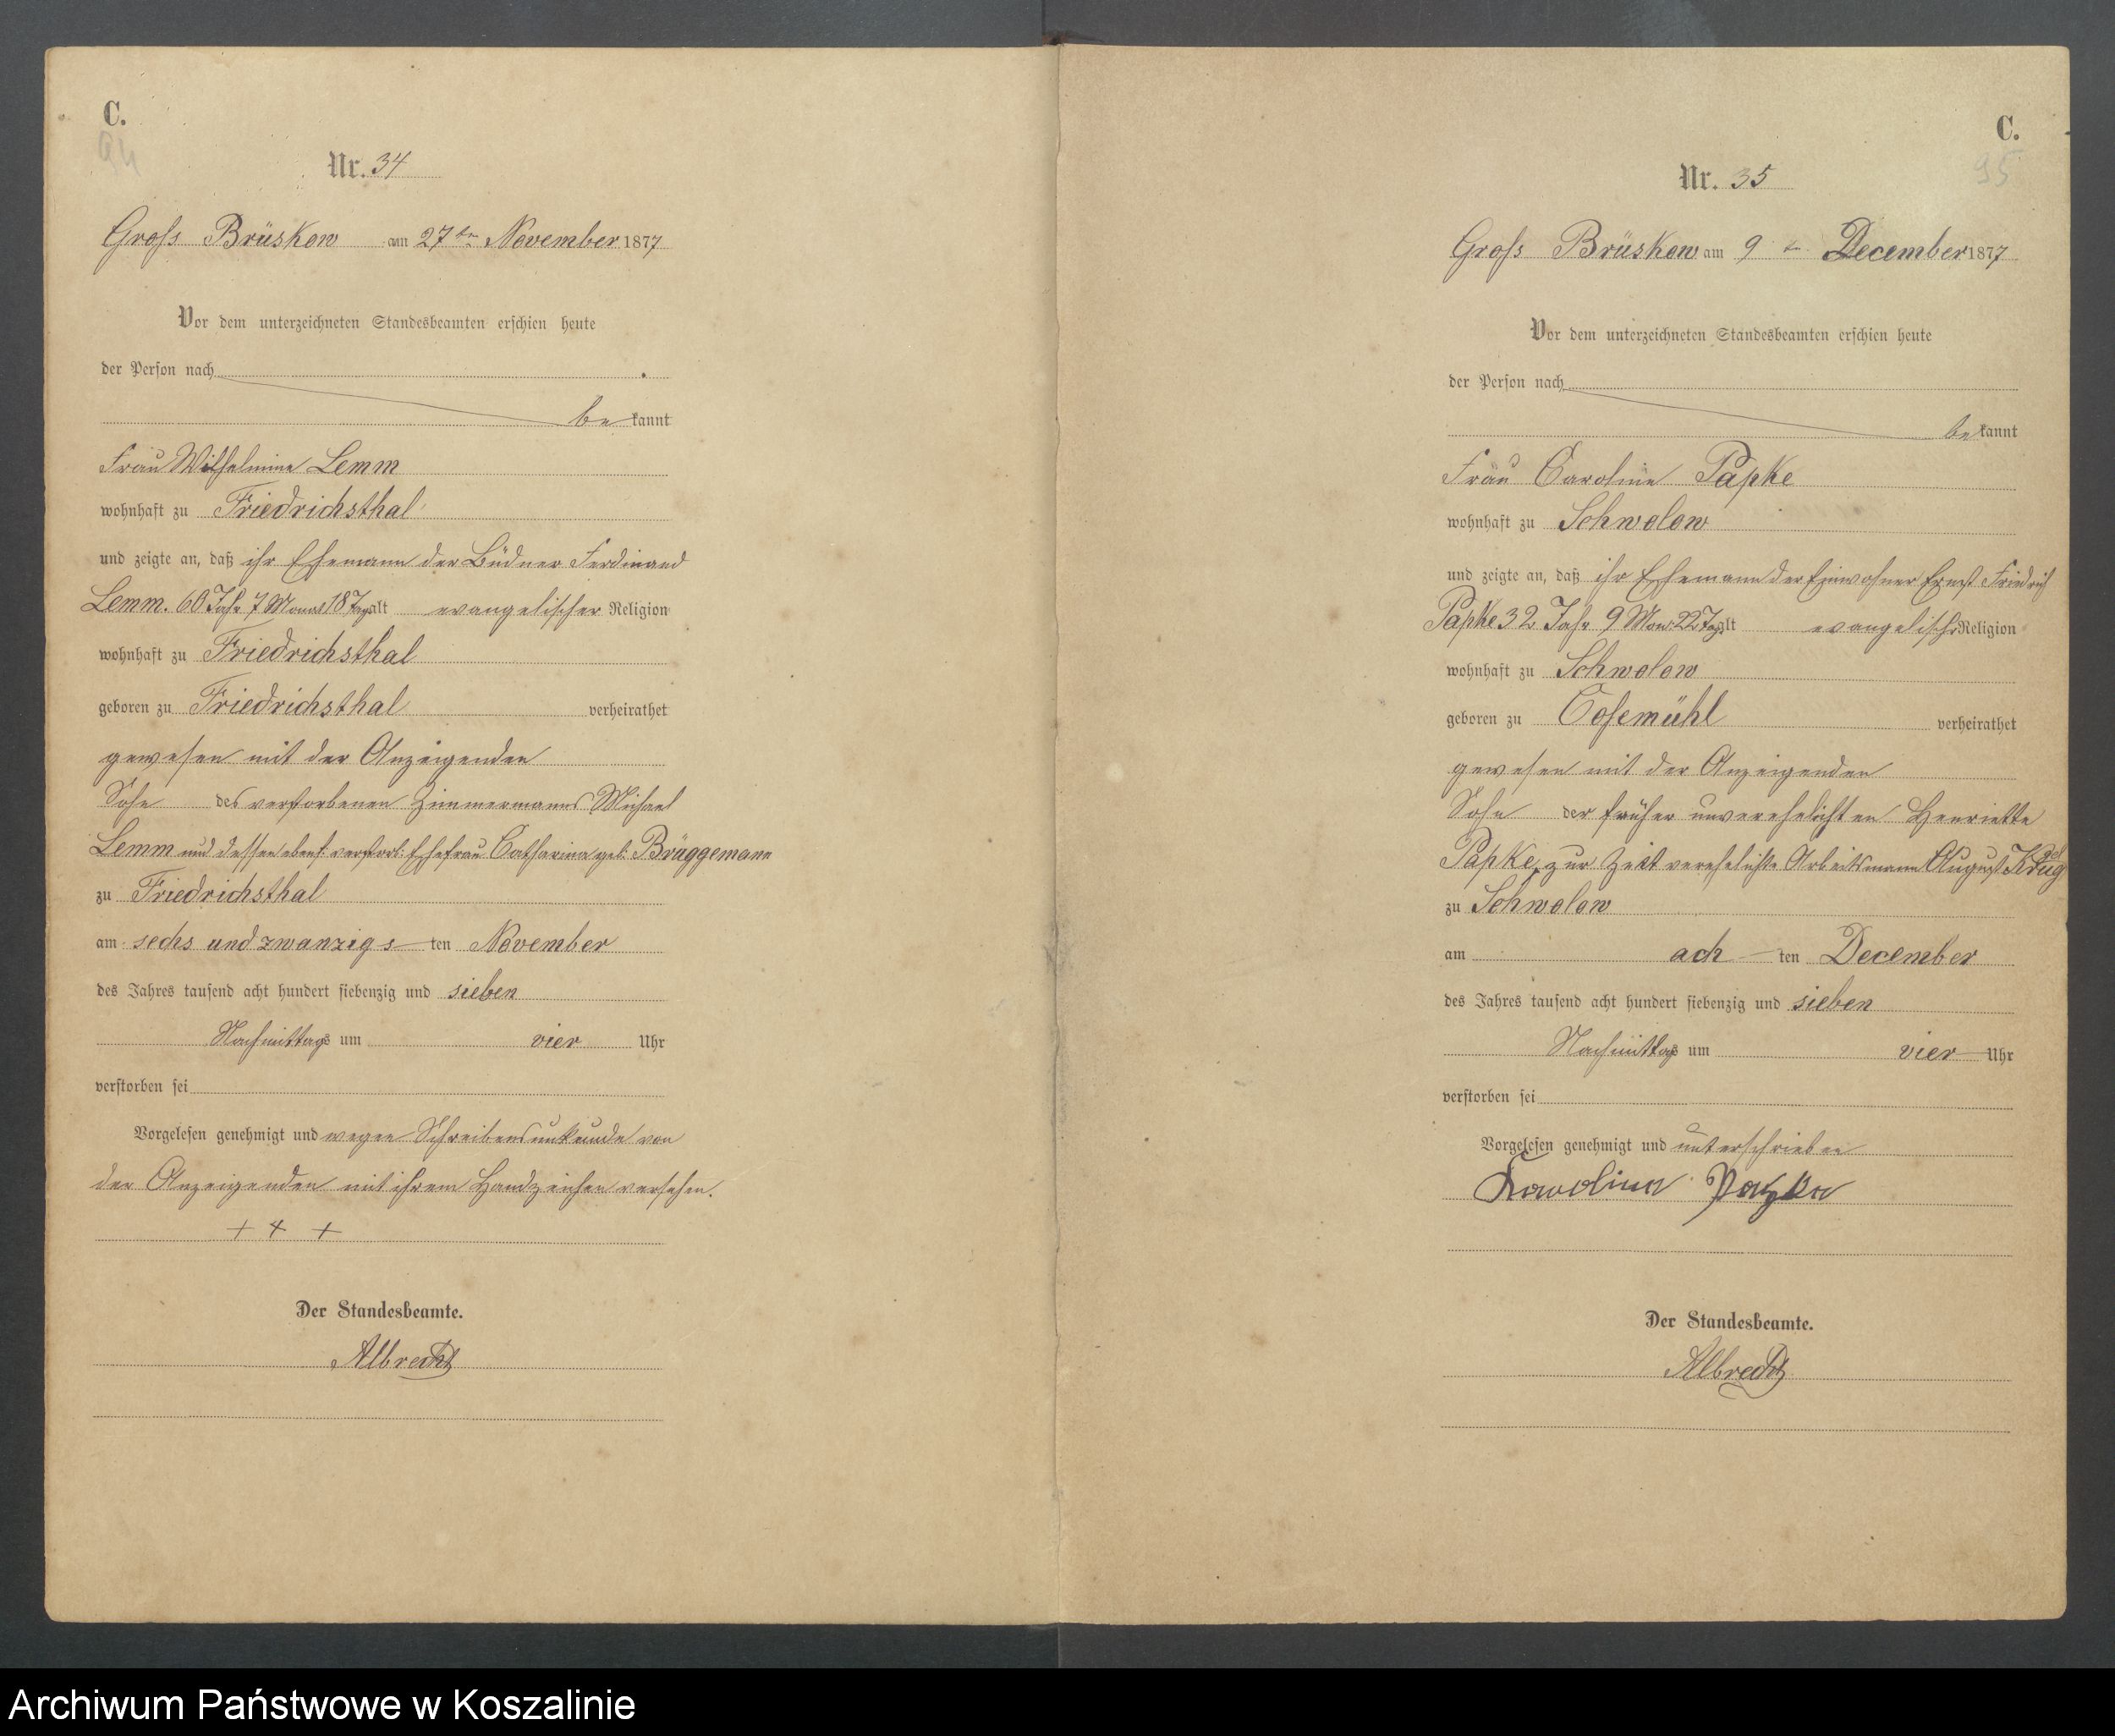 C.
94
Nr. 34
Groß Brüskow am 27ten November 1877
Vor dem unterzeichneten Standesbeamten erschien heute
der Person nach
bekannt
Frau Wilhelmine Lemm
wohnhaft zu Friedrichsthal
und zeigte an, daß ihr Ehemann der Büdner Ferdinand
Lemm. 60 Jahr 7 Monat 18 Tage alt evangelischer Religion
wohnhaft zu Friedrichsthal
geboren zu Friedrichsthal verheirathet
gewesen mit der Anzeigenden
Sohn des verstorbenen Zimmermanns Michael
Lemm und dessen ebenf. verstorb. Ehefrau Catharina geb. Brüggemann
zu Friedrichsthal
am sechs und zwanzigsten November
des Jahres tausend acht hundert siebenzig und sieben
Nachmittags um vier Uhr
verstorben sei
Vorgelesen genehmigt und wegen Schreibensunkunde von
der Anzeigenden mit ihrem Handzeichen versehen.
+ + +
Der Standesbeamte.
Albrecht
C.
95
Nr. 35
Groß Brüskow am 9ten December 1877
Vor dem unterzeichneten Standesbeamten erschien heute
der Person nach
bekannt
Frau Caroline Papke
wohnhaft zu Schwolow
und zeigte an, daß ihr Ehemann der Einwohner Ernst Friedrich
Papke 32 Jahr 9 Mon. 22 Tage alt evangelischer Religion
wohnhaft zu Schwolow
geboren zu Cosemühl verheirathet
gewesen mit der Anzeigenden
Sohn der früher unverehelichten Henriette
Papke, zur Zeit verehelichte Arbeitsmann August Krug
zu Schwolow
am achten December
des Jahres tausend acht hundert siebenzig und sieben
Nachmittags um vier Uhr
verstorben sei
Vorgelesen genehmigt und unterschrieben
Karoline Papke
Der Standesbeamte.
Albrecht
Archiwum Państwowe w Koszalinie